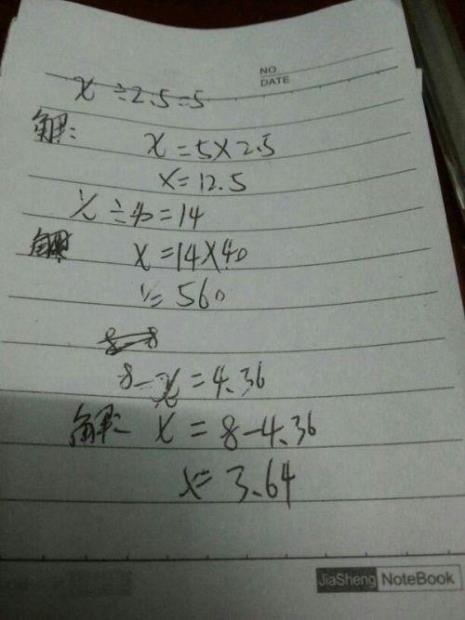 NO
DATE
x÷2.5=5
解: x=5×2.5
x=12.5
x÷40=14
解 x=14×40
x=560
8-x=4.36
解: x=8-4.36
x=3.64
JiaSheng NoteBook